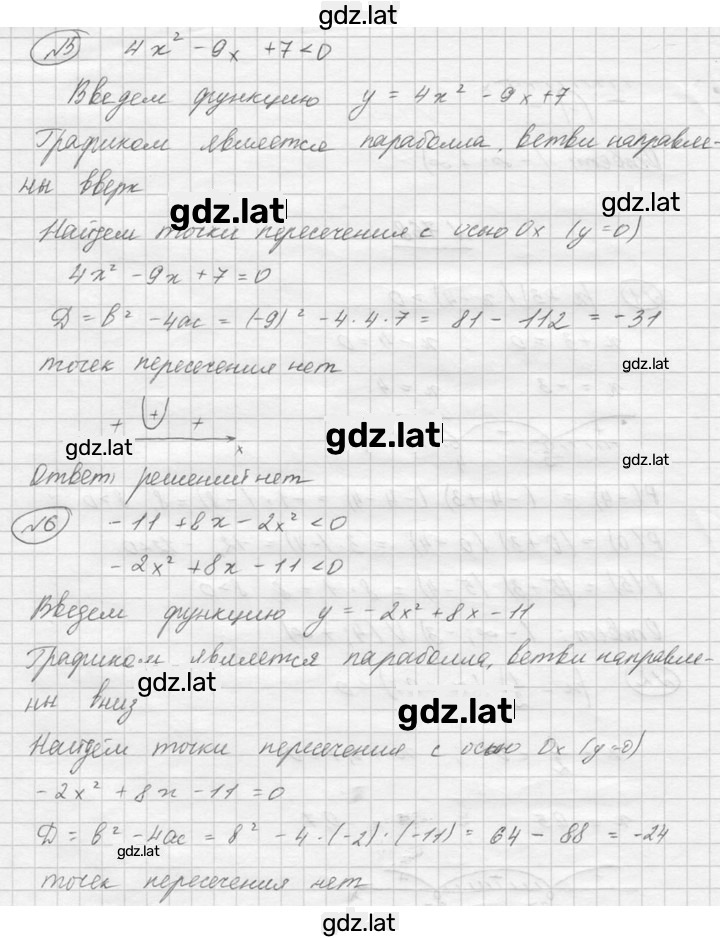 gdz.lat
№5 4x² - 9x + 7 < 0
Введем функцию y = 4x² - 9x + 7
Графиком является параболла, ветви направле-
ны вверх
gdz.lat
gdz.lat
Найдем точки пересечения с осью Ox (y = 0)
4x² - 9x + 7 = 0
D = b² - 4ac = (-9)² - 4·4·7 = 81 - 112 = -31
точек пересечения нет
gdz.lat
+ + +
x
gdz.lat
gdz.lat
gdz.lat
Ответ: решений нет
№6 -11 + 8x - 2x² < 0
-2x² + 8x - 11 < 0
Введем функцию y = -2x² + 8x - 11
Графиком является параболла, ветви направле-
ны вниз
gdz.lat
gdz.lat
Найдём точки пересечения с осью Ox (y = 0)
-2x² + 8x - 11 = 0
D = b² - 4ac = 8² - 4·(-2)·(-11) = 64 - 88 = -24
gdz.lat
точек пересечения нет
gdz.lat